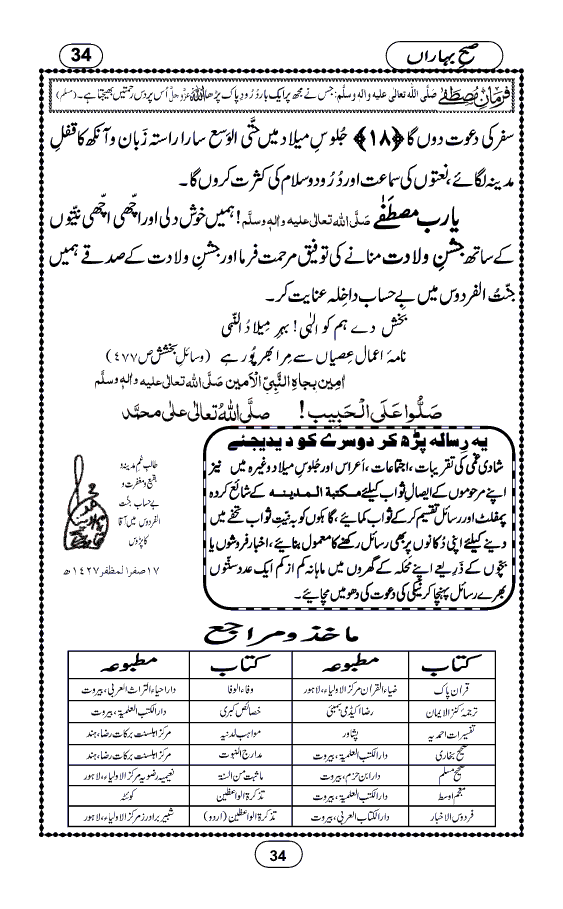 34
صبحِ بہاراں
فرمانِ مصطفےٰ صلَّی اللہ تعالٰی علیہ والہ وسلَّم: جس نے مجھ پر ایک بار دُرُودِ پاک پڑھا اللہ عزوجل اُس پر دس رحمتیں بھیجتا ہے۔ (مسلم)
سفر کی دعوت دوں گا ﴿۱۸﴾ جُلوسِ میلاد میں حتَّی الوَسع سارا راستہ زَبان و آنکھ کا قفلِ
مدینہ لگائے، نعتوں کی سماعت اور دُرُود و سلام کی کثرت کروں گا۔
یا ربِّ مصطَفٰے صلَّی اللہ تعالٰی علیہ والہٖ وسلَّم! ہمیں خوش دلی اور اچّھی اچّھی نیّتوں
کے ساتھ جشنِ ولادت منانے کی توفیق مرحمت فرما اور جشنِ ولادت کے صدقے ہمیں
جنّتُ الفردوس میں بے حساب داخِلہ عنایت کر۔
بخش دے ہم کو الٰہی! بہرِ میلادُ النَّبی
نامۂ اعمال عصیاں سے مِرا بھرپور ہے (وسائلِ بخشش ص۴۷۷)
اٰمِین بِجاہِ النَّبِیِّ الْاَمین صلَّی اللہ تعالٰی علیہ والہٖ وسلَّم
صَلُّوا عَلَی الْحَبِیب! صلَّی اللہُ تعالٰی علٰی محمَّد
یہ رسالہ پڑھ کر دوسرے کو دیدیجئے
شادی غمی کی تقریبات، اجتماعات، اَعراس اور جُلوسِ میلاد وغیرہ میں نیز
اپنے مرحوموں کے ایصالِ ثواب کیلئے مکتبۃ المدینہ کے شائع کردہ
پمفلٹ اور رسائل تقسیم کر کے ثواب کمائیے، گاہکوں کو بہ نیّتِ ثواب تحفے میں
دینے کیلئے اپنی دُکانوں پر بھی رسائل رکھنے کا معمول بنائیے، اخبار فروشوں یا
بچّوں کے ذَرِیعے اپنے محلّہ کے گھروں میں ماہانہ کم از کم ایک عدد سنّتوں
بھرے رسائل پہنچا کر نیکی کی دعوت کی دھومیں مچائیے۔
طالبِ غمِ مدینہ و
بقیع و مغفرت و
بے حساب جنّت
الفردوس میں آقا
کا پڑوس
۱۷ صفر المظفر ۱۴۲۷ھ
ماخذ و مراجع
کتاب مطبوعہ کتاب مطبوعہ
قرانِ پاک ضیاء القران مرکز الاولیاء، لاہور وفاء الوفا دار احیاء التراث العربی، بیروت
ترجمۂ کنز الایمان رضا اکیڈمی بمبئی خصائص کبریٰ دار الکتب العلمیۃ، بیروت
تفسیرات احمدیہ پشاور مواہب لدنیہ مرکز اہلسنت برکات رضا، ہند
صحیح بخاری دار الکتب العلمیۃ، بیروت مدارج النبوت مرکز اہلسنت برکات رضا، ہند
صحیح مسلم دار ابن حزم، بیروت ما ثبت من السنۃ نعیمیہ رضویہ مرکز الاولیاء، لاہور
معجم اوسط دار الکتب العلمیۃ، بیروت تذکرۃ الواعظین کوئٹہ
فردوس الاخبار دار الکتاب العربی، بیروت تذکرۃ الواعظین (اردو) شبیر برادرز مرکز الاولیاء، لاہور
34